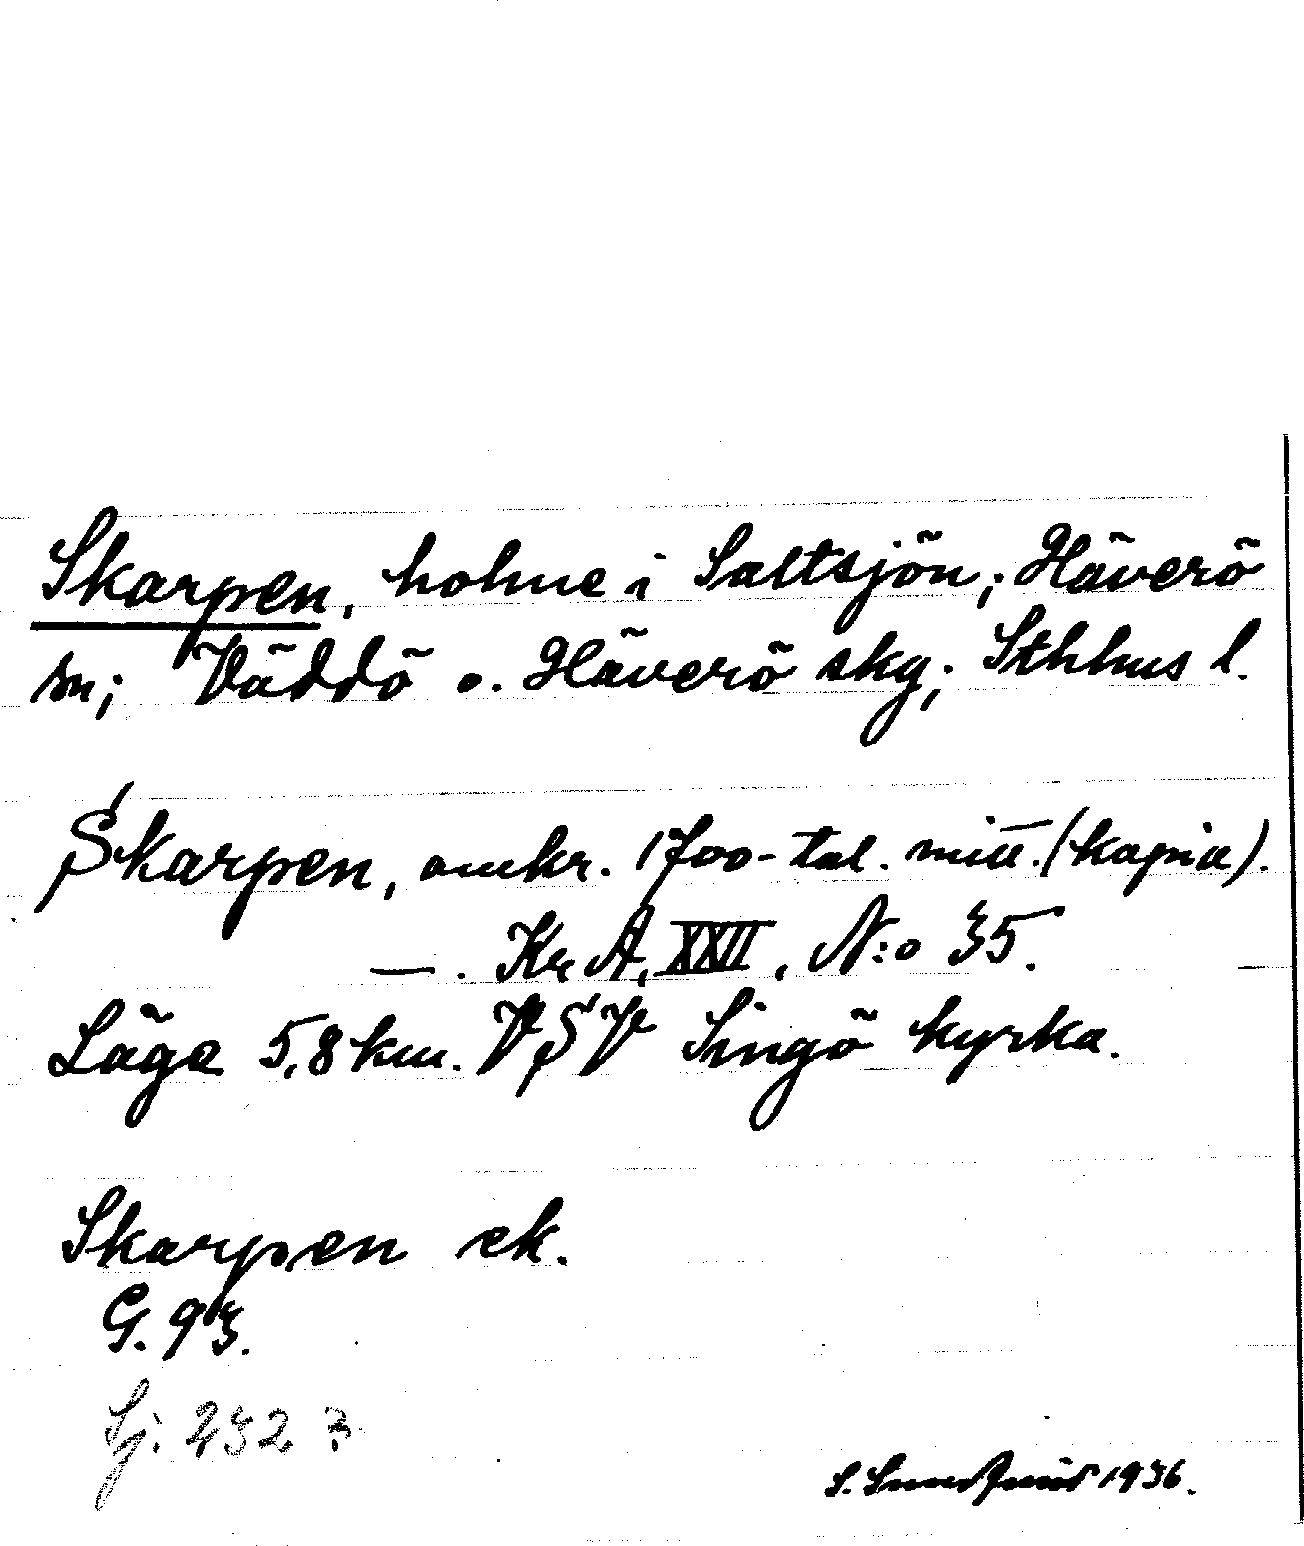 Skarpen, holme i Saltsjön; Häverö
sn; Väddö o. Häverö skg; Sthlms l.
Skarpen, omkr. 1700-tal. mitt. (kopia).
—. Kr A, XXII, N:o 35.
Läge 5,8 km. VSV Singö kyrka.
Skarpen ek.
G. 93.
Sj. 232 ?
S. Sundqvist 1936.